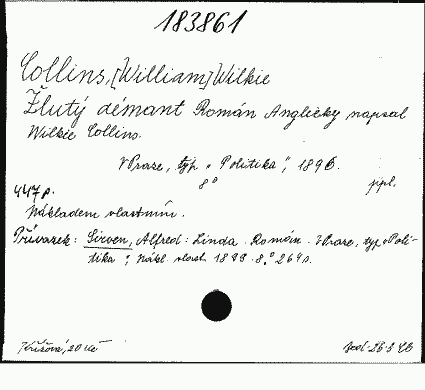 183861
Collins, [William] Wilkie
Žlutý démant Román Anglicky napsal
Wilkie Collins.
V Praze, typ. „Politika", 1896.
8° ppl.
447 s.
Nákladem vlastním.
Přívazek: Sirven, Alfred: Linda. Román. V Praze, typ. „Poli-
tika", Nákl. vlast. 1899. 8.° 264 s.
Křížová, 20 Kč